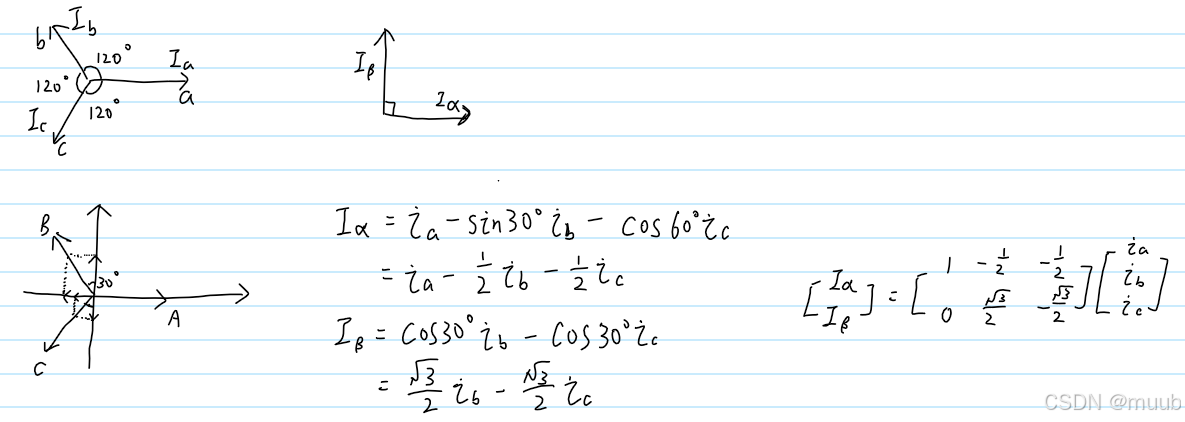 I_b
b
120°
I_a
120°
a
120°
I_c
c
I_β
I_α
B
30°
A
C
I_α = i_a - sin30° i_b - cos60° i_c
= i_a - 1/2 i_b - 1/2 i_c
I_β = cos30° i_b - cos30° i_c
= √3/2 i_b - √3/2 i_c
[I_α I_β] = [1 -1/2 -1/2 0 √3/2 -√3/2] [i_a i_b i_c]
CSDN @muub